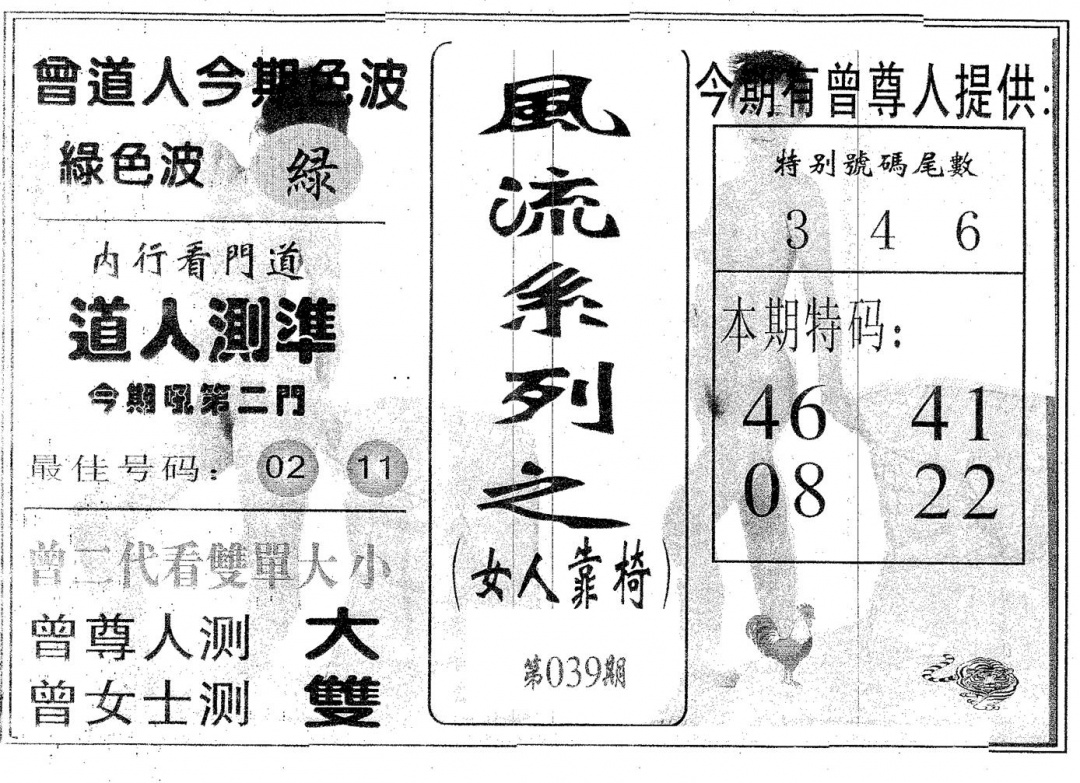 曾道人今期色波
綠色波 緑
内行看門道
道人測準
今期吼第二門
最佳号码: 02 11
曾二代看雙單大小
曾尊人测 大
曾女士测 雙
風流系列之
(女人靠椅)
第039期
今期有曾尊人提供:
特别號碼尾數
3 4 6
本期特码:
46 41
08 22